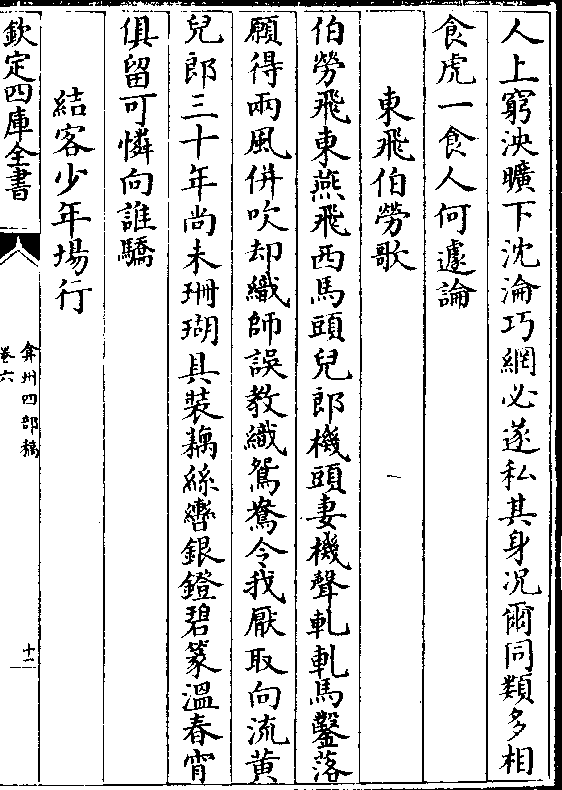 人上窮泱曠下沈淪巧網必遂私其身况爾同類多相
食虎一食人何遽論
東飛伯勞歌
伯勞飛東燕飛西馬頭兒郎機頭妻機聲軋軋馬鑿落
願得兩風併吹却織師誤教織鴛鴦令我厭取向流黄
兒郎三十年尚未珊瑚具装藕絲轡銀鐙碧篆溫春宵
俱留可憐向誰驕
結客少年場行
欽定四庫全書
弇州四部稿
卷六
十二